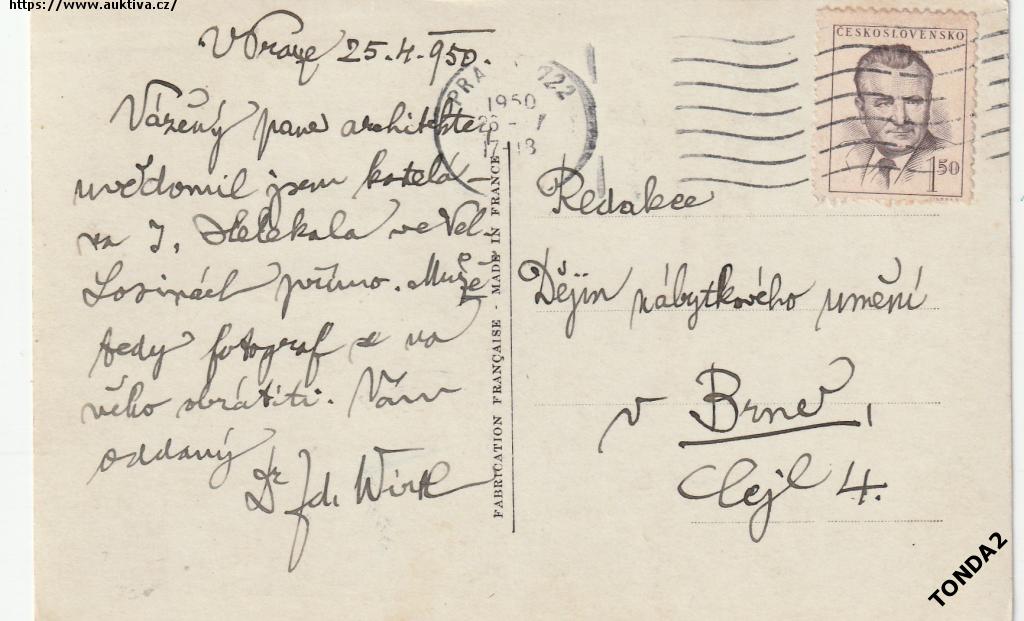 https://www.auktiva.cz/
V Praze 25.4.950.
Vážený pane architekte,
uvědomil jsem kastelá-
na J. ve Vel.
Losinách přímo. Může
tedy fotograf se na
něho obrátiti. Vám
oddaný
Dr Zd. Wirth
FABRICATION FRANÇAISE - MADE IN FRANCE
PRAHA 022
1950
17-18
ČESKOSLOVENSKO
1 50
Redakce
Dějin nábytkového umění
v Brně,
Cejl 4.
TONDA2